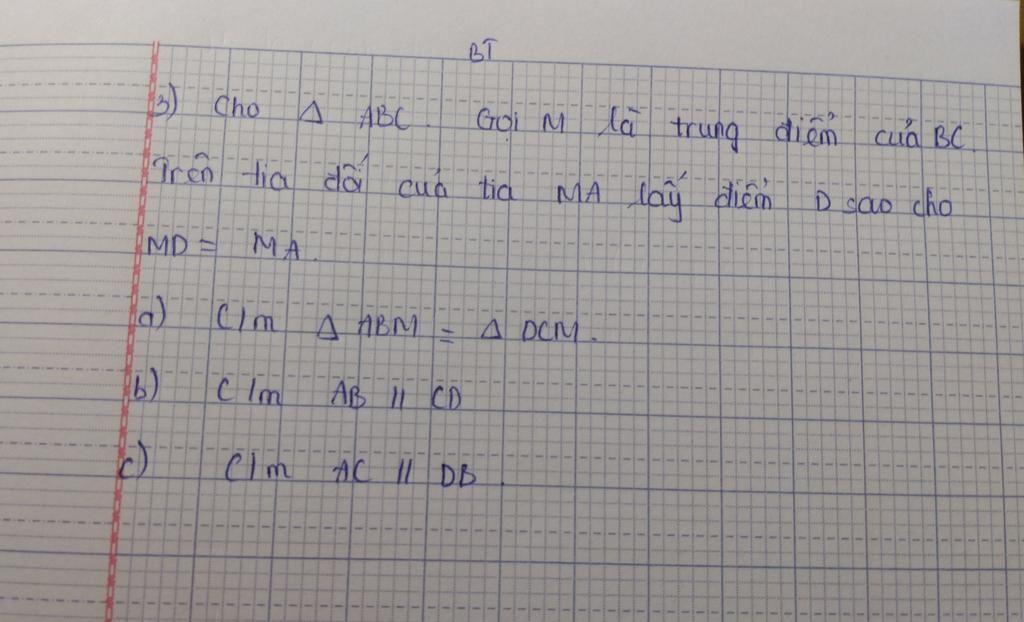 BT
3) Cho Δ ABC. Gọi M là trung điểm của BC.
Trên tia đối của tia MA lấy điểm D sao cho
MD = MA.
a) C/m Δ ABM = Δ DCM.
b) C/m AB // CD
c) C/m AC // DB.